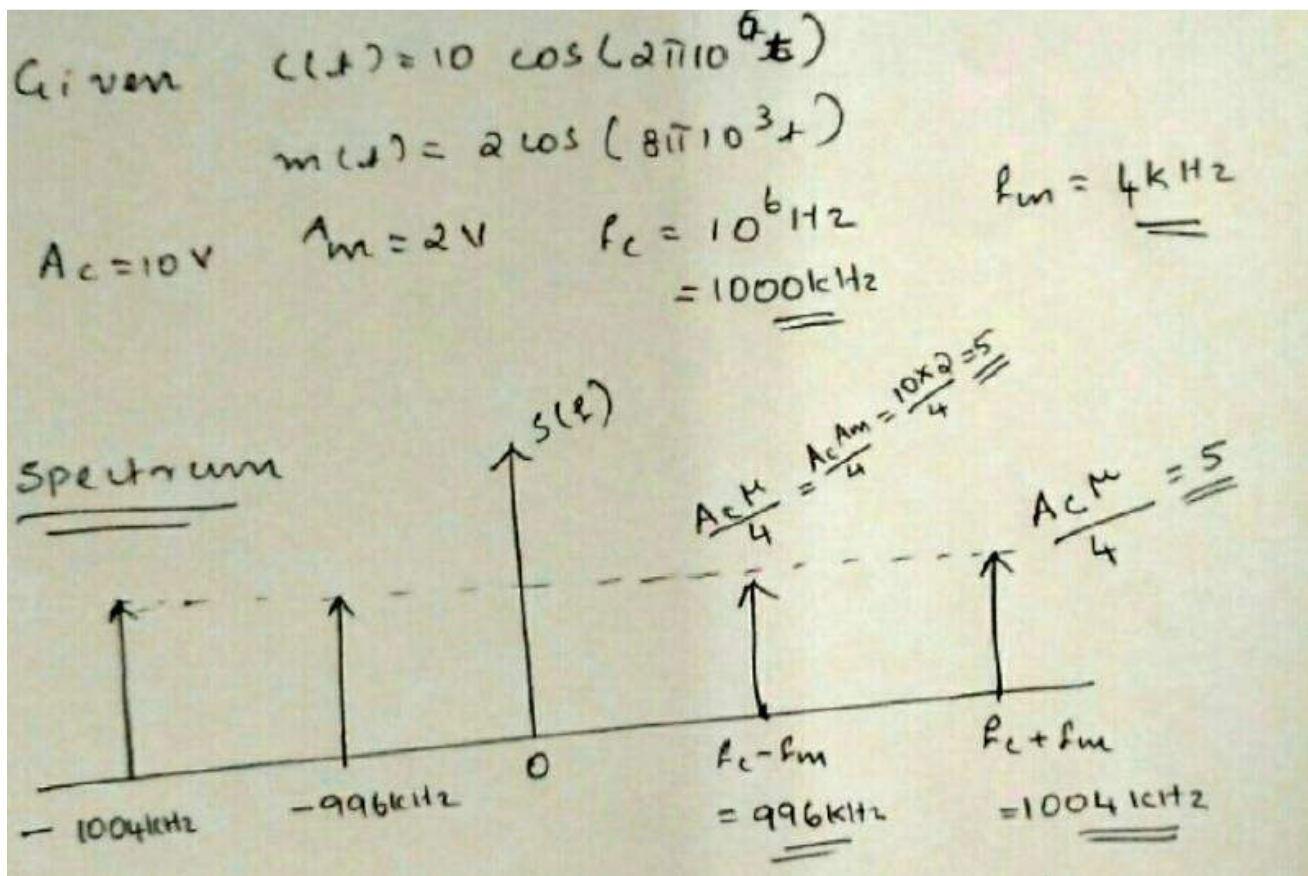 Given c(t) = 10 cos(2π10⁶t)
m(t) = 2 cos(8π10³t)
Ac = 10V Am = 2V fc = 10⁶Hz fm = 4kHz
= 1000kHz
Spectrum
S(f)
Acμ/4 = AcAm/4 = 10×2/4 = 5
Acμ/4 = 5
- 1004kHz
-996kHz
0
fc-fm
= 996kHz
fc+fm
=1004kHz